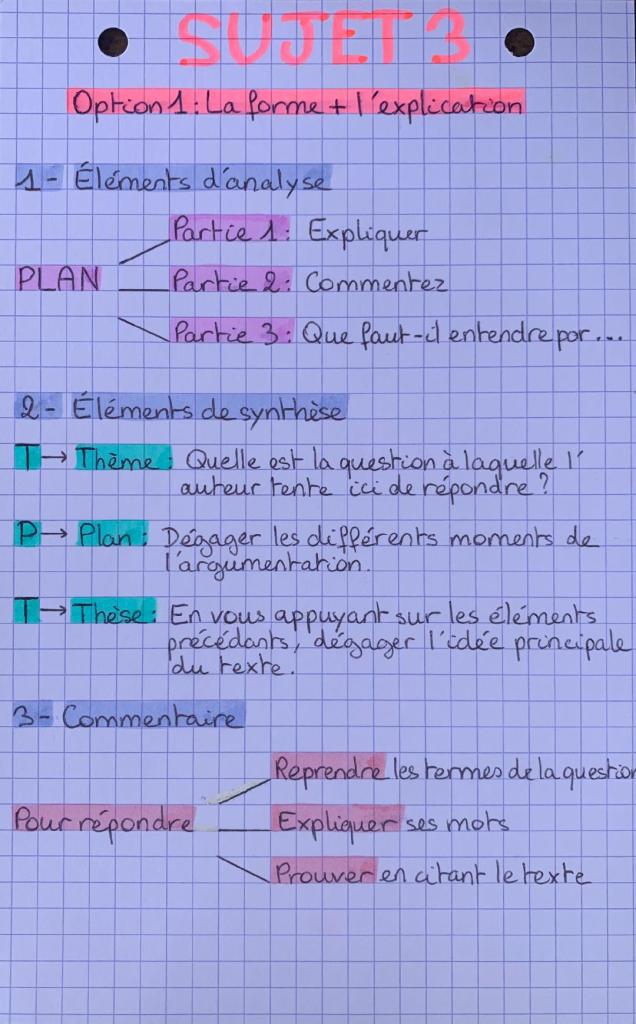 SUJET 3
Option 1 : La forme + l'explication
1 - Éléments d'analyse
Partie 1 : Expliquer
PLAN
Partie 2 : Commentez
Partie 3 : Que faut-il entendre par...
2 - Éléments de synthèse
T → Thème : Quelle est la question à laquelle l'
auteur tente ici de répondre ?
P → Plan : Dégager les différents moments de
l'argumentation.
T → Thèse : En vous appuyant sur les éléments
précédants, dégager l'idée principale
du texte.
3 - Commentaire
Reprendre les termes de la question
Pour répondre
Expliquer ses mots
Prouver en citant le texte